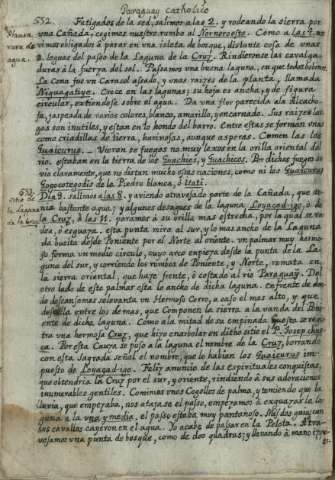 Paraguay Catholico
552. Fatigados de la sed, salimos a las 2. y rodeando la sierra por
una Cañada, seguimos nuestro rumbo al Nornoroeste. Como a las 4. nos
vimos obligados à parar en una isleta de bosque, distante cosa de unas
leguas del passo de la Laguna de la Cruz. Rindieronse las cavalga-
duras à la fuerza del sol. Passamos una buena laguna, en que todos bebimos.
La Cena fue un Carnero assado, y unas raizes de la planta, llamada
Niguagatiye. Crece en las lagunas; su hoja es ancha, y de figura
circular, estiendese sobre el agua. Da una flor parecida ala Alcacho-
fa, jaspeada de varios colores, blanco, amarillo, y encarnado. Sus raizes lar-
gas son inutiles, y estan en lo hondo del barro. Entre estas se forman unas
como criadillas de tierra, harinosas, aunque asperas. Comen las los
Guaicurus. Vieron se fuegos no muy lexos en la orilla oriental del
rio. estaban en la tierra de los Guachies, y Guachicos. Por dichos fuegos se
viò claramente, que no distan mucho estas naciones, como ni los Guaicurus
de la Piedra blanca, ò Itati.
Dia 9. salimos a las 8. y aviendo atravesado parte de la Cañada, que te-
nia bastante agua; y algunos desagues de la laguna ò de
la Cruz, à las 11. paramos à su orilla mas estrecha, por la qual se va-
dea, ò esguaza. esta punta mira al sur, y lo mas ancho de la Laguna
da buelta desde Poniente por el Norte al oriente. un palmar muy hermo-
so forma un medio circulo, cuyo arco empieza desde la punta de la La-
guna del sur, y corriendo los rumbos de Poniente, y Norte, remata en
la sierra oriental, que haze frente, ò costado al rio Paraguay. Del
otro lado de este palmar esta lo ancho de dicha laguna. enfrente de don-
de descansamos se levanta un Hermoso Cerro, a caso el mas alto, y que
descuella entre los de mas, que Componen la sierra à la vanda del Pon-
iente de dicha laguna. Como a la mitad de su empinada cuesta se regis-
tra una hermosa Cruz, que hizo enarbolar en dicho sitio el P. Joseph
Por esta Causa se puso a la laguna el nombre de la Cruz, borrando
con esta sagrada señal el nombre, que le habian los Guaicurus im-
puesto de Felix anuncio de las espirituales conquistas,
que obtendria la Cruz por el sur, y oriente, rindiendo à sus adoraciones
innumerables gentiles. Comimos unos Cogollos de Palma, y temiendo que la
lluvia, que empezaba, nos atajase el passo, empezamos à esguazar la la-
guna a la una y media. el passo estaba muy pantanoso. Mas dos quisieran
los cavallos cayeron en el agua. Yo acabè de passar en la Pelota. Atra-
vesamos una punta de bosque, como de dos quadras; y llevando à mano